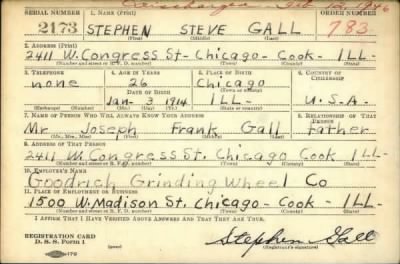 Discharged Feb 12, 1946
SERIAL NUMBER 1. NAME (Print) ORDER NUMBER
2173 STEPHEN STEVE GALL 783
(First) (Middle) (Last)
2. ADDRESS (Print)
2411 W. Congress St- Chicago- Cook- ILL-
(Number and street or R. F. D. number) (Town) (County) (State)
3. TELEPHONE 4. AGE IN YEARS 5. PLACE OF BIRTH 6. COUNTRY OF CITIZENSHIP
none 26 Chicago
DATE OF BIRTH (Town or county)
Jan- 3 1914 ILL- U.S.A.
(Exchange) (Number) (Mo.) (Day) (Yr.) (State or country)
7. NAME OF PERSON WHO WILL ALWAYS KNOW YOUR ADDRESS 8. RELATIONSHIP OF THAT PERSON
Mr. Joseph Frank Gall father
(Mr., Mrs., Miss) (First) (Middle) (Last)
9. ADDRESS OF THAT PERSON
2411 W. Congress St. Chicago- Cook- ILL-
(Number and street or R. F. D. number) (Town) (County) (State)
10. EMPLOYER'S NAME
Goodrich Grinding Wheel Co
11. PLACE OF EMPLOYMENT OR BUSINESS
1500 W. Madison St. Chicago- Cook- ILL-
(Number and street or R. F. D. number) (Town) (County) (State)
I AFFIRM THAT I HAVE VERIFIED ABOVE ANSWERS AND THAT THEY ARE TRUE.
REGISTRATION CARD
D. S. S. Form 1
Stephen Gall
(Registrant's signature)